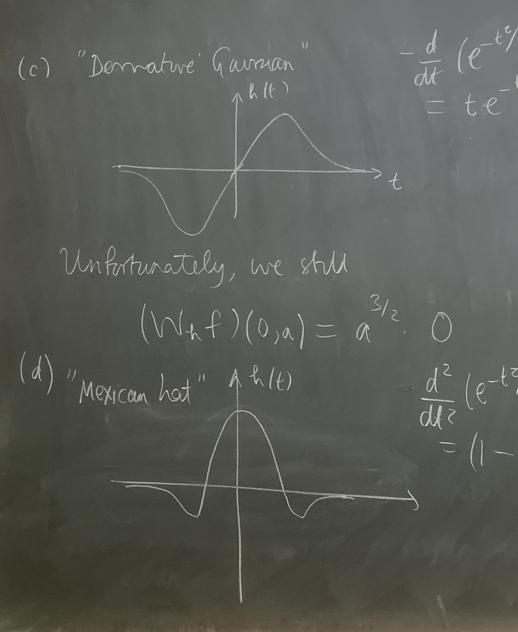 (c) "Derivative Gaussian"
h(t)
t
-d/dt (e^{-t^2/
= t e^{-
Unfortunately, we still
(W_h f)(0,a) = a^{3/2} · 0
(d) "Mexican hat"
h(t)
-d²/dt² (e^{-t^2
= (1 -